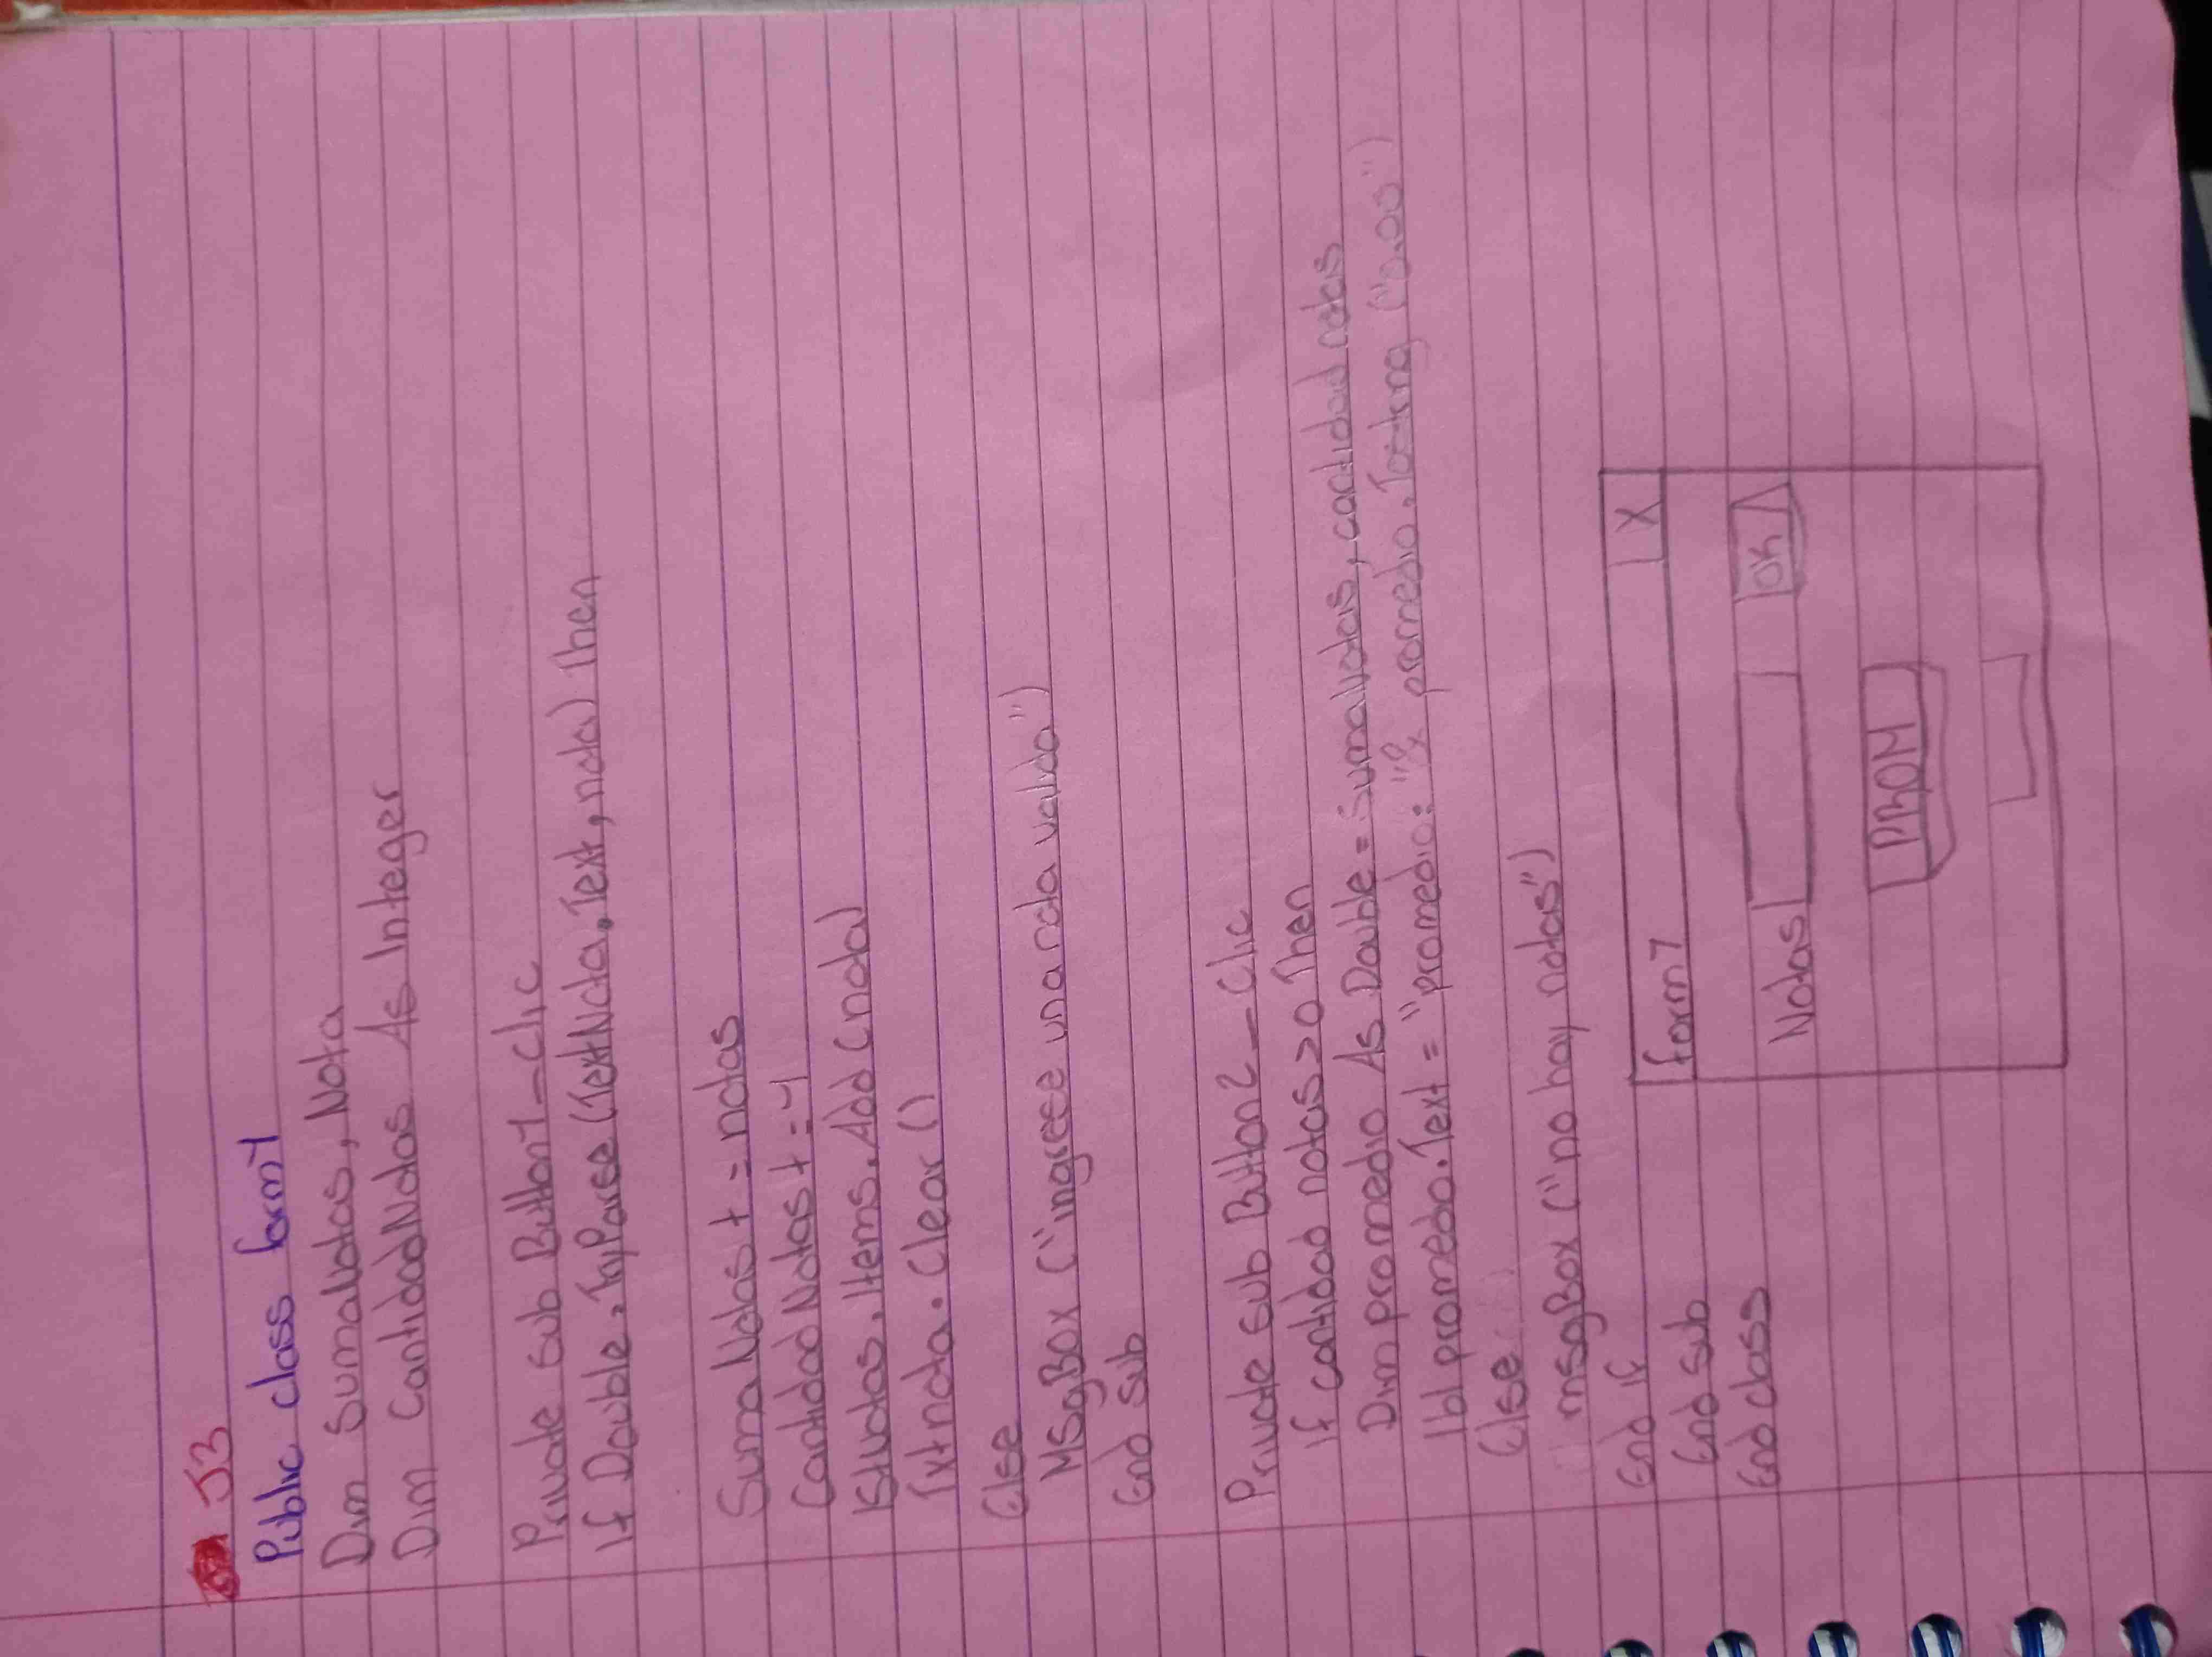 J3
Public class form1
Dim SumaNotas, Nota
Dim CantidadNotas As Integer
Private sub Button1_clic
If Double.TryParse(TextNota.Text, nota) Then
SumaNotas += notas
CantidadNotas +=1
lstNotas.Items.Add(nota)
Txtnota.Clear()
Else
MSgBox ("ingrese una nota valida")
End sub
Private sub Button2_Clic
If cantidad notas>0 Then
Dim promedio As Double = SumaNotas, cantidad notas
lbl promedio.Text = "promedio: "& promedio.Tostring ("0.00")
Else
msgBox ("no hay notas")
End if
End sub
End class
form1 X
Notas OK
PROM